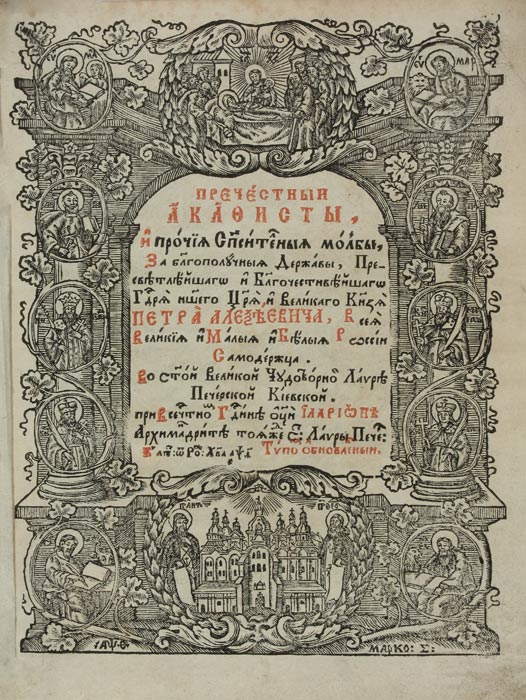 ПРЕЧЕ́СТНЫИ
А҆КА́ѲИСТЫ,
И҆ про́чїѧ Сп҃си́телныѧ мол҃бы,
За бл҃гополу́чныѧ Держа́вы, Пре-
свѣтлѣ́йшагѡ и҆ Бл҃гочести́вѣйшагѡ
Гдⷭ҇рѧ н҃шего Цр҃ѧ, и҆ Вели́кагѡ Кн҃зѧ
ПЕТРА̀ АЛЕѮІ́ЕВИЧА, Всеѧ̀
Вели́кїѧ и҆ Ма́лыѧ и҆ Бѣ́лыѧ Рѡссі́и
Самоде́ржца.
Во ст҃о́й Вели́кой Чудотво́рной Ла́урѣ
Пече́рской Кі́евской.
при Всечⷭ҇тномъ Гдⷭ҇и́нѣ ѻ҆ц҃ѣ̀ І҆ЛАРІѠ́НѢ
А҆рхїмандри́тѣ тоѧ́же ст҃ы́ѧ Ла́уры Пече́р:
Ту́по обновле́ныи,
МАРКО: Σ: